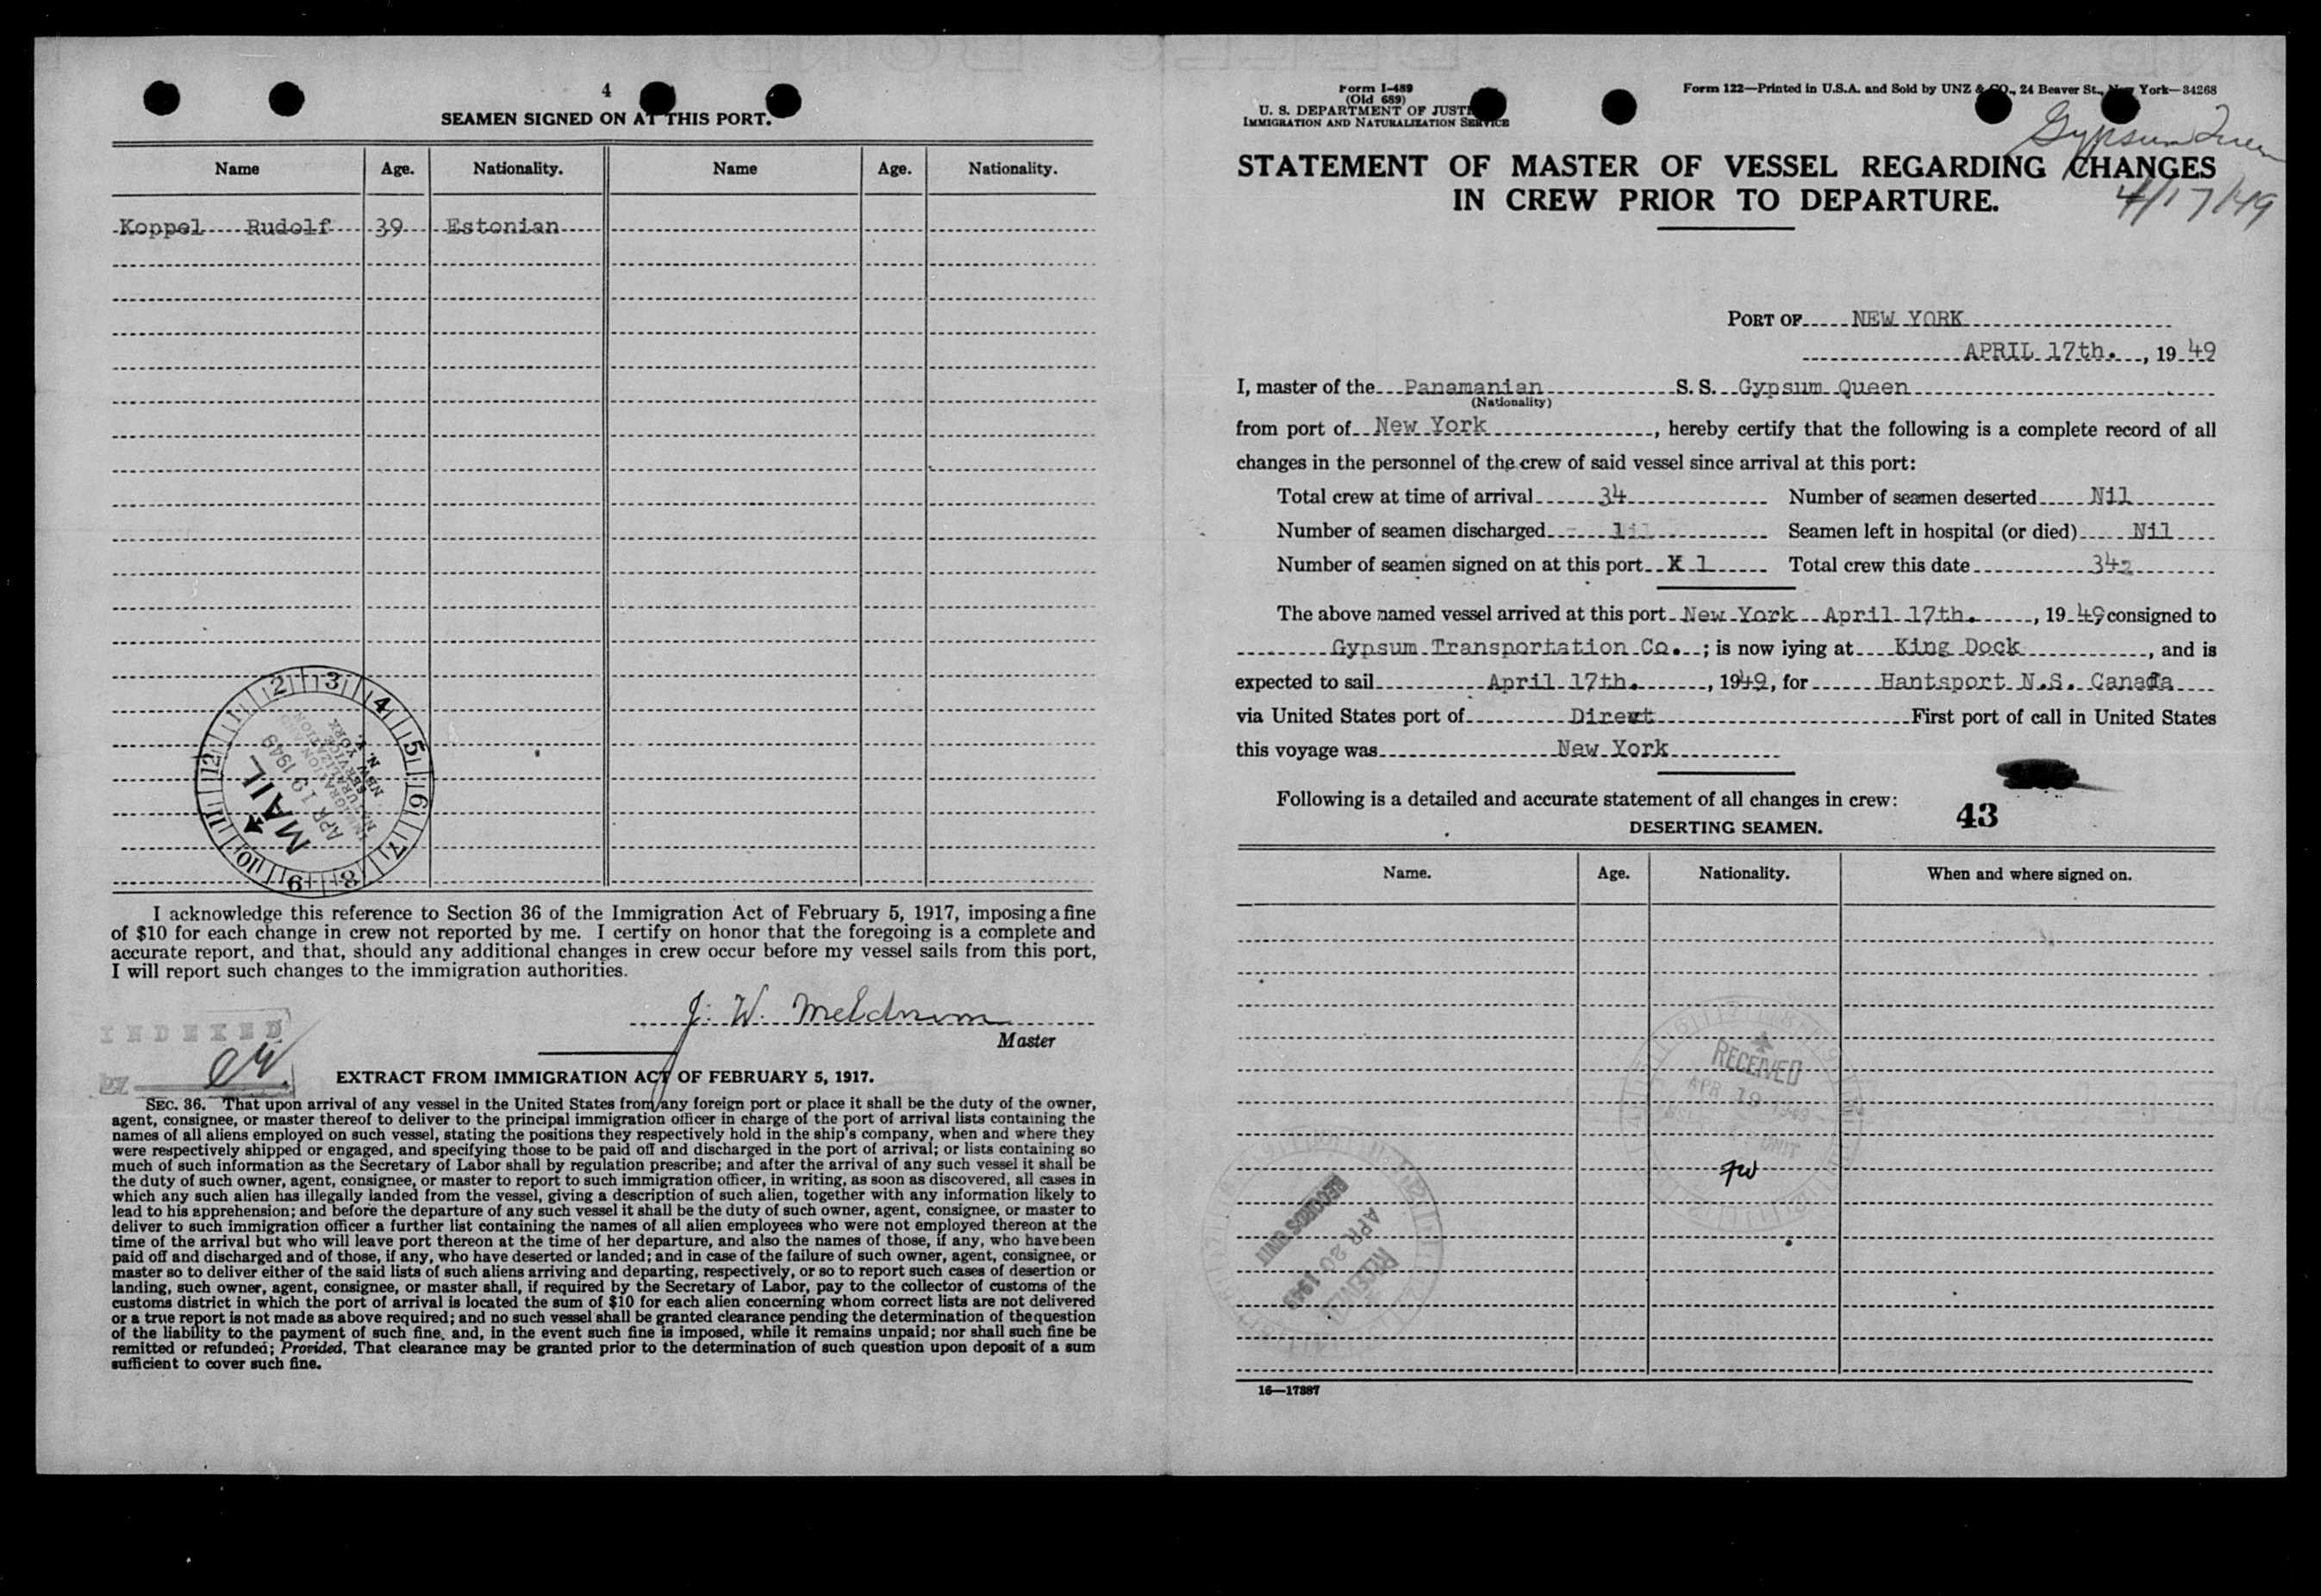 4
SEAMEN SIGNED ON AT THIS PORT.
Name Age. Nationality. Name Age. Nationality.
Koppel Rudolf 39 Estonian
MAIL
APR 19 1949
IMMIGRATION AND
NATURALIZATION
SERVICE
NEW YORK
N. Y.
1 2 3 4 5 6 7 8 9 10 11 12
I acknowledge this reference to Section 36 of the Immigration Act of February 5, 1917, imposing a fine
of $10 for each change in crew not reported by me. I certify on honor that the foregoing is a complete and
accurate report, and that, should any additional changes in crew occur before my vessel sails from this port,
I will report such changes to the immigration authorities.
J. W. Meldrum
Master
INDEXED
BY
EXTRACT FROM IMMIGRATION ACT OF FEBRUARY 5, 1917.
SEC. 36. That upon arrival of any vessel in the United States from any foreign port or place it shall be the duty of the owner,
agent, consignee, or master thereof to deliver to the principal immigration officer in charge of the port of arrival lists containing the
names of all aliens employed on such vessel, stating the positions they respectively hold in the ship's company, when and where they
were respectively shipped or engaged, and specifying those to be paid off and discharged in the port of arrival; or lists containing so
much of such information as the Secretary of Labor shall by regulation prescribe; and after the arrival of any such vessel it shall be
the duty of such owner, agent, consignee, or master to report to such immigration officer, in writing, as soon as discovered, all cases in
which any such alien has illegally landed from the vessel, giving a description of such alien, together with any information likely to
lead to his apprehension; and before the departure of any such vessel it shall be the duty of such owner, agent, consignee, or master to
deliver to such immigration officer a further list containing the names of all alien employees who were not employed thereon at the
time of the arrival but who will leave port thereon at the time of her departure, and also the names of those, if any, who have been
paid off and discharged and of those, if any, who have deserted or landed; and in case of the failure of such owner, agent, consignee, or
master so to deliver either of the said lists of such aliens arriving and departing, respectively, or so to report such cases of desertion or
landing, such owner, agent, consignee, or master shall, if required by the Secretary of Labor, pay to the collector of customs of the
customs district in which the port of arrival is located the sum of $10 for each alien concerning whom correct lists are not delivered
or a true report is not made as above required; and no such vessel shall be granted clearance pending the determination of the question
of the liability to the payment of such fine, and, in the event such fine is imposed, while it remains unpaid; nor shall such fine be
remitted or refunded; Provided, That clearance may be granted prior to the determination of such question upon deposit of a sum
sufficient to cover such fine.
Form I-489
(Old 689)
U. S. DEPARTMENT OF JUSTI
IMMIGRATION AND NATURALIZATION SERVICE
Form 122—Printed in U.S.A. and Sold by UNZ & CO., 24 Beaver St., New York—34268
Gypsum Queen
4/17/49
STATEMENT OF MASTER OF VESSEL REGARDING CHANGES
IN CREW PRIOR TO DEPARTURE.
PORT OF NEW YORK
APRIL 17th., 19 49
I, master of the Panamanian S. S. Gypsum Queen
(Nationality)
from port of New York, hereby certify that the following is a complete record of all
changes in the personnel of the crew of said vessel since arrival at this port:
Total crew at time of arrival 34 Number of seamen deserted Nil
Number of seamen discharged 1 Seamen left in hospital (or died) Nil
Number of seamen signed on at this port X 1 Total crew this date 34
The above named vessel arrived at this port New York April 17th., 19 49 consigned to
Gypsum Transportation Co.; is now iying at King Dock, and is
expected to sail April 17th., 1949, for Hantsport N.S. Canada
via United States port of Direct First port of call in United States
this voyage was New York
Following is a detailed and accurate statement of all changes in crew:
43
DESERTING SEAMEN.
Name. Age. Nationality. When and where signed on.
RECEIVED
APR 19 1949
UNIT
RECORDS UNIT
APR 20 1949
RECEIVED
16—17387